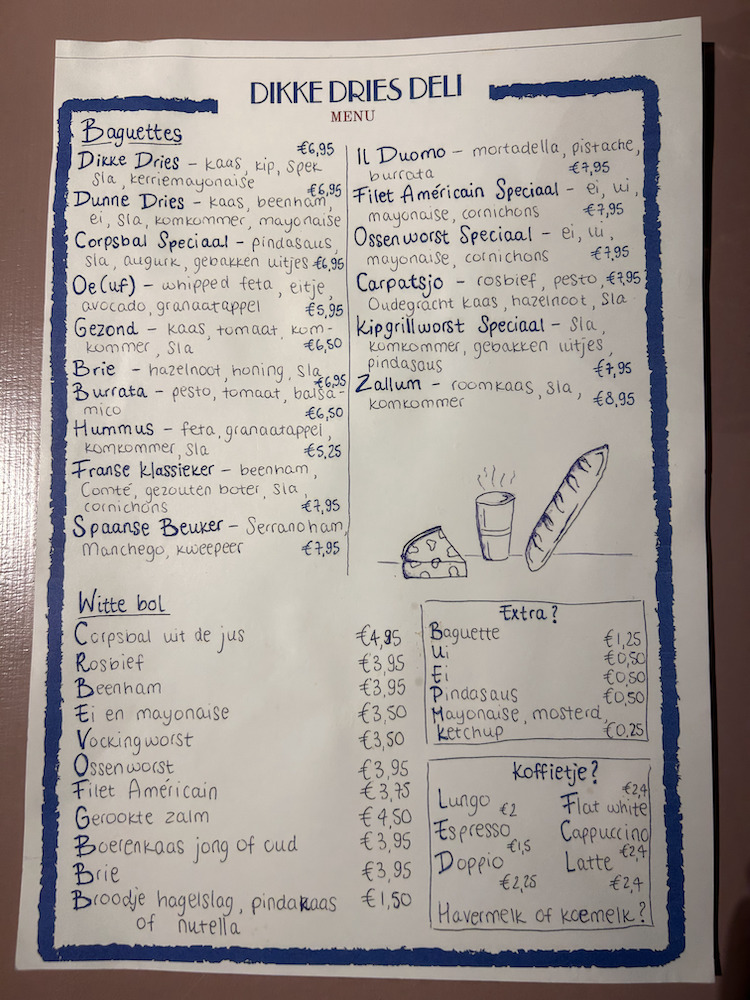 DIKKE DRIES DELI
MENU
Baguettes
€6,95
Dikke Dries - kaas, kip, spek
sla, kerriemayonaise
€6,95
Dunne Dries - kaas, beenham,
ei, sla, komkommer, mayonaise
Corpsbal Speciaal - pindasaus,
sla, augurk, gebakken uitjes €6,95
Oe(uf) - whipped feta, eitje,
avocado, granaatappel €5,95
Gezond - kaas, tomaat, kom-
kommer, sla €6,50
Brie - hazelnoot, honing, sla
€6,95
Burrata - pesto, tomaat, balsa-
mico €6,50
Hummus - feta, granaatappel,
komkommer, sla €5,25
Franse klassieker - beenham,
Comté, gezouten boter, sla,
cornichons €7,95
Spaanse Beuker - Serranoham,
Manchego, kweepeer €7,95
Il Duomo - mortadella, pistache,
burrata €7,95
Filet Américain Speciaal - ei, ui,
mayonaise, cornichons €7,95
Ossenworst Speciaal - ei, ui,
mayonaise, cornichons €7,95
Carpatsjo - rosbief, pesto, €7,95
Oudegracht kaas, hazelnoot, sla
Kipgrillworst Speciaal - sla,
komkommer, gebakken uitjes,
pindasaus €7,95
Zallum - roomkaas, sla,
komkommer €8,95
Witte bol
Corpsbal uit de jus €4,95
Rosbief €3,95
Beenham €3,95
Ei en mayonaise €3,50
Vockingworst €3,50
Ossenworst €3,95
Filet Américain €3,75
Gerookte zalm €4,50
Boerenkaas jong of oud €3,95
Brie €3,95
Broodje hagelslag, pindakaas €1,50
of nutella
Extra?
Baguette €1,25
Ui €0,50
Ei €0,50
Pindasaus €0,50
Mayonaise, mosterd,
ketchup €0,25
Koffietje?
Lungo €2
Espresso €1,5
Doppio €2,25
€2,4
Flat white
Cappuccino
€2,4
Latte
€2,4
Havermelk of koemelk?